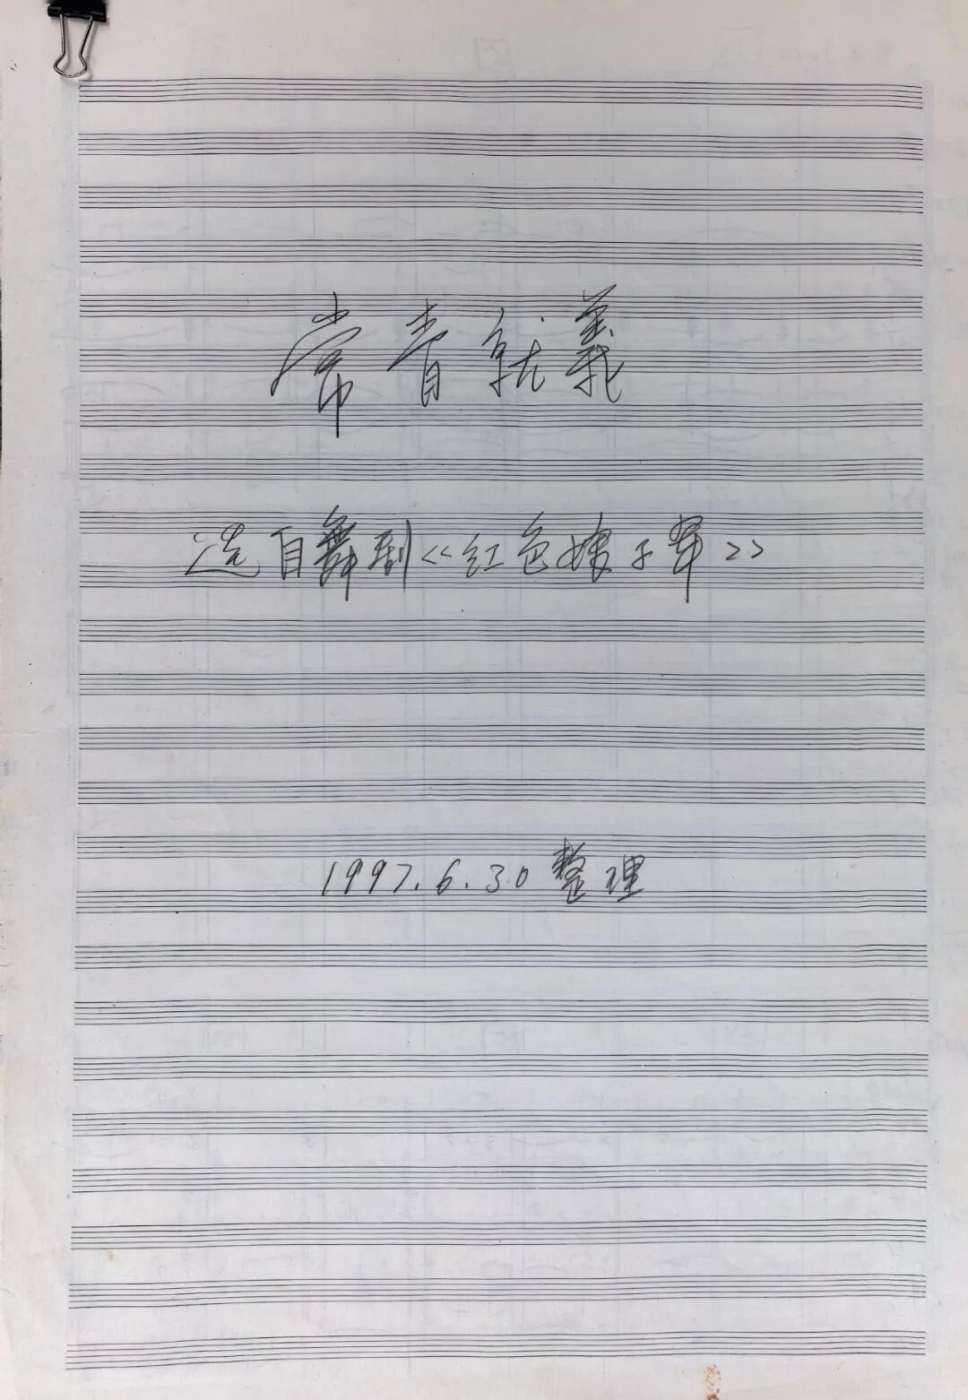 常青就義
选自舞剧《红色娘子军》
1997.6.30 整理